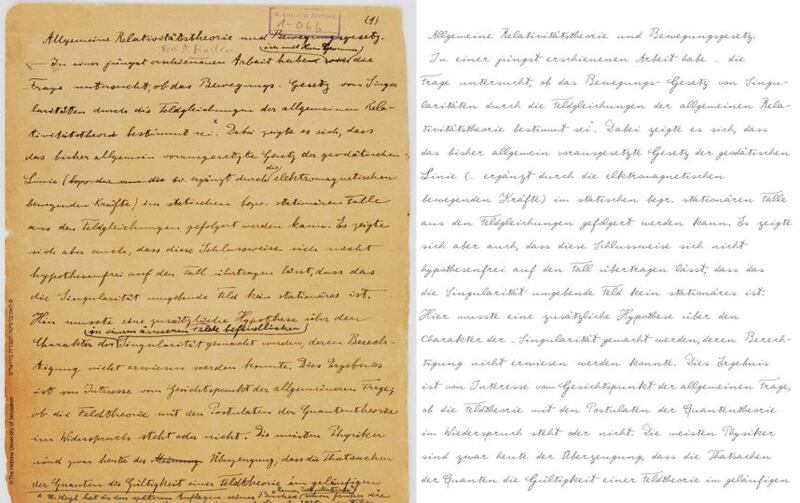 (1)
A. Einstein Archive
1-066
Allgemeine Relativitätstheorie und Bewegungsgesetz.
ich mit Herrn Grommer
In einer jüngst erschienenen Arbeit habe die
Frage untersucht, ob das Bewegungs-Gesetz von Singu
laritäten durch die Feldgleichungen der allgemeinen Rela-
tivitätstheorie bestimmt sei. x Dabei zeigte es sich, dass
das bisher allgemein vorausgesetzte Gesetz der geodätischen
Linie ( ergänzt durch die elektromagnetischen
bewegenden Kräfte) im statischen bezw. stationären Falle
aus den Feldgleichungen gefolgert werden kann. Es zeigte
sich aber auch, dass diese Schlussweise sich nicht
hypothesenfrei auf den Fall übertragen lässt, dass das
die Singularität umgebende Feld kein stationäres ist.
Hier musste eine zusätzliche Hypothese über den
in einem äusseren Felde befindlichen
Charakter der Singularität gemacht werden, deren Berech-
tigung nicht erwiesen werden konnte. Dies Ergebnis
ist von Interesse vom Gesichtspunkt der allgemeinen Frage,
ob die Feldtheorie mit den Postulaten der Quantentheorie
im Widerspruch steht oder nicht. Die meisten Physiker
sind zwar heute der Überzeugung, dass die Thatsachen
der Quanten die Gültigkeit einer Feldtheorie im geläufigen
© The Hebrew University of Jerusalem
Allgemeine Relativitätstheorie und Bewegungsgesetz.
In einer jüngst erschienenen Arbeit habe _ die
Frage untersucht, ob das Bewegungs-Gesetz von Singu-
laritäten durch die Feldgleichungen der allgemeinen Rela-
tivitätstheorie bestimmt sei. x Dabei zeigte es sich, dass
das bisher allgemein vorausgesetzte Gesetz der geodätischen
Linie (_ ergänzt durch die elktromagnetischen
bewegenden Kräfte) im statischen begr. stationären Falle
aus den Feldgleichungen gefolgert werden kann. Es zeigte
sich aber auch, dass diese Schlussweise sich nicht
hypothesenfrei auf den Fall übertragen lässt, dass das
die Singularität umgebende Feld kein stationäres ist.
Hier musste eine zusätzliche Hypothese über den
Charakter der _ Singularität gemacht werden, deren Berech-
tigung nicht erwiesen werden konnte. Dies Ergebnis
ist von Interesse vom Gesichtspunkt der allgemeinen Frage,
ob die Feldtheorie mit den Postulaten der Quantentheorie
im Wiederspruch steht oder nicht. Die meisten Physiker
sind zwar heute der Überzeugung, dass die Thatsachen
der Quanten die Gültigkeit einer Feldtheorie im geläufigen